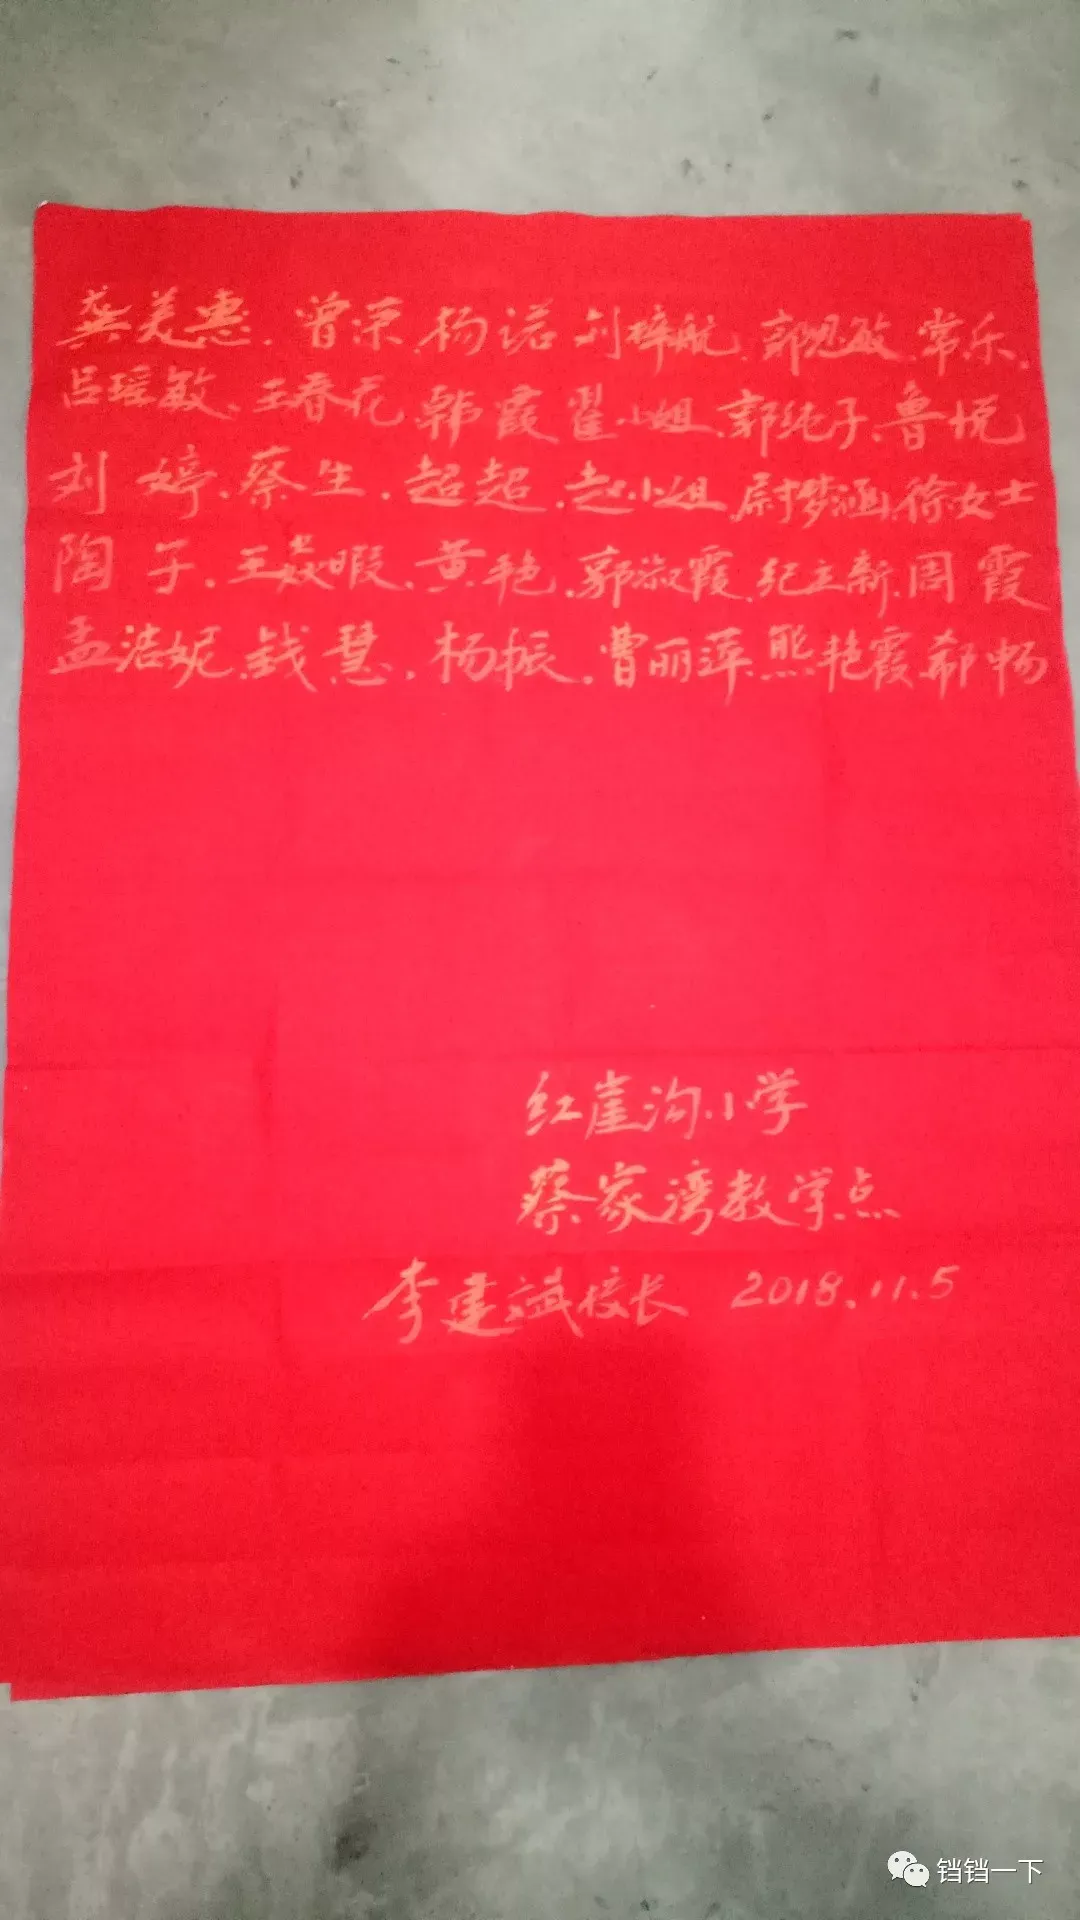 龚美惠、曾荣、杨诺 刘梓航、郭见敏、常乐、
吕瑶敏、王春花、韩霞 翟小姐、郭纯子、鲁悦
刘婷、蔡生、超超、赵小姐、尉梦涵、徐女士
陶子、王焱暇、黄艳、郭淑霞、纪立新、周霞
孟洁妮、钱慧、杨振、曹丽萍、熊艳霞、郝畅
红崖沟小学
蔡家湾教学点
李建斌校长 2018.11.5
铛铛一下